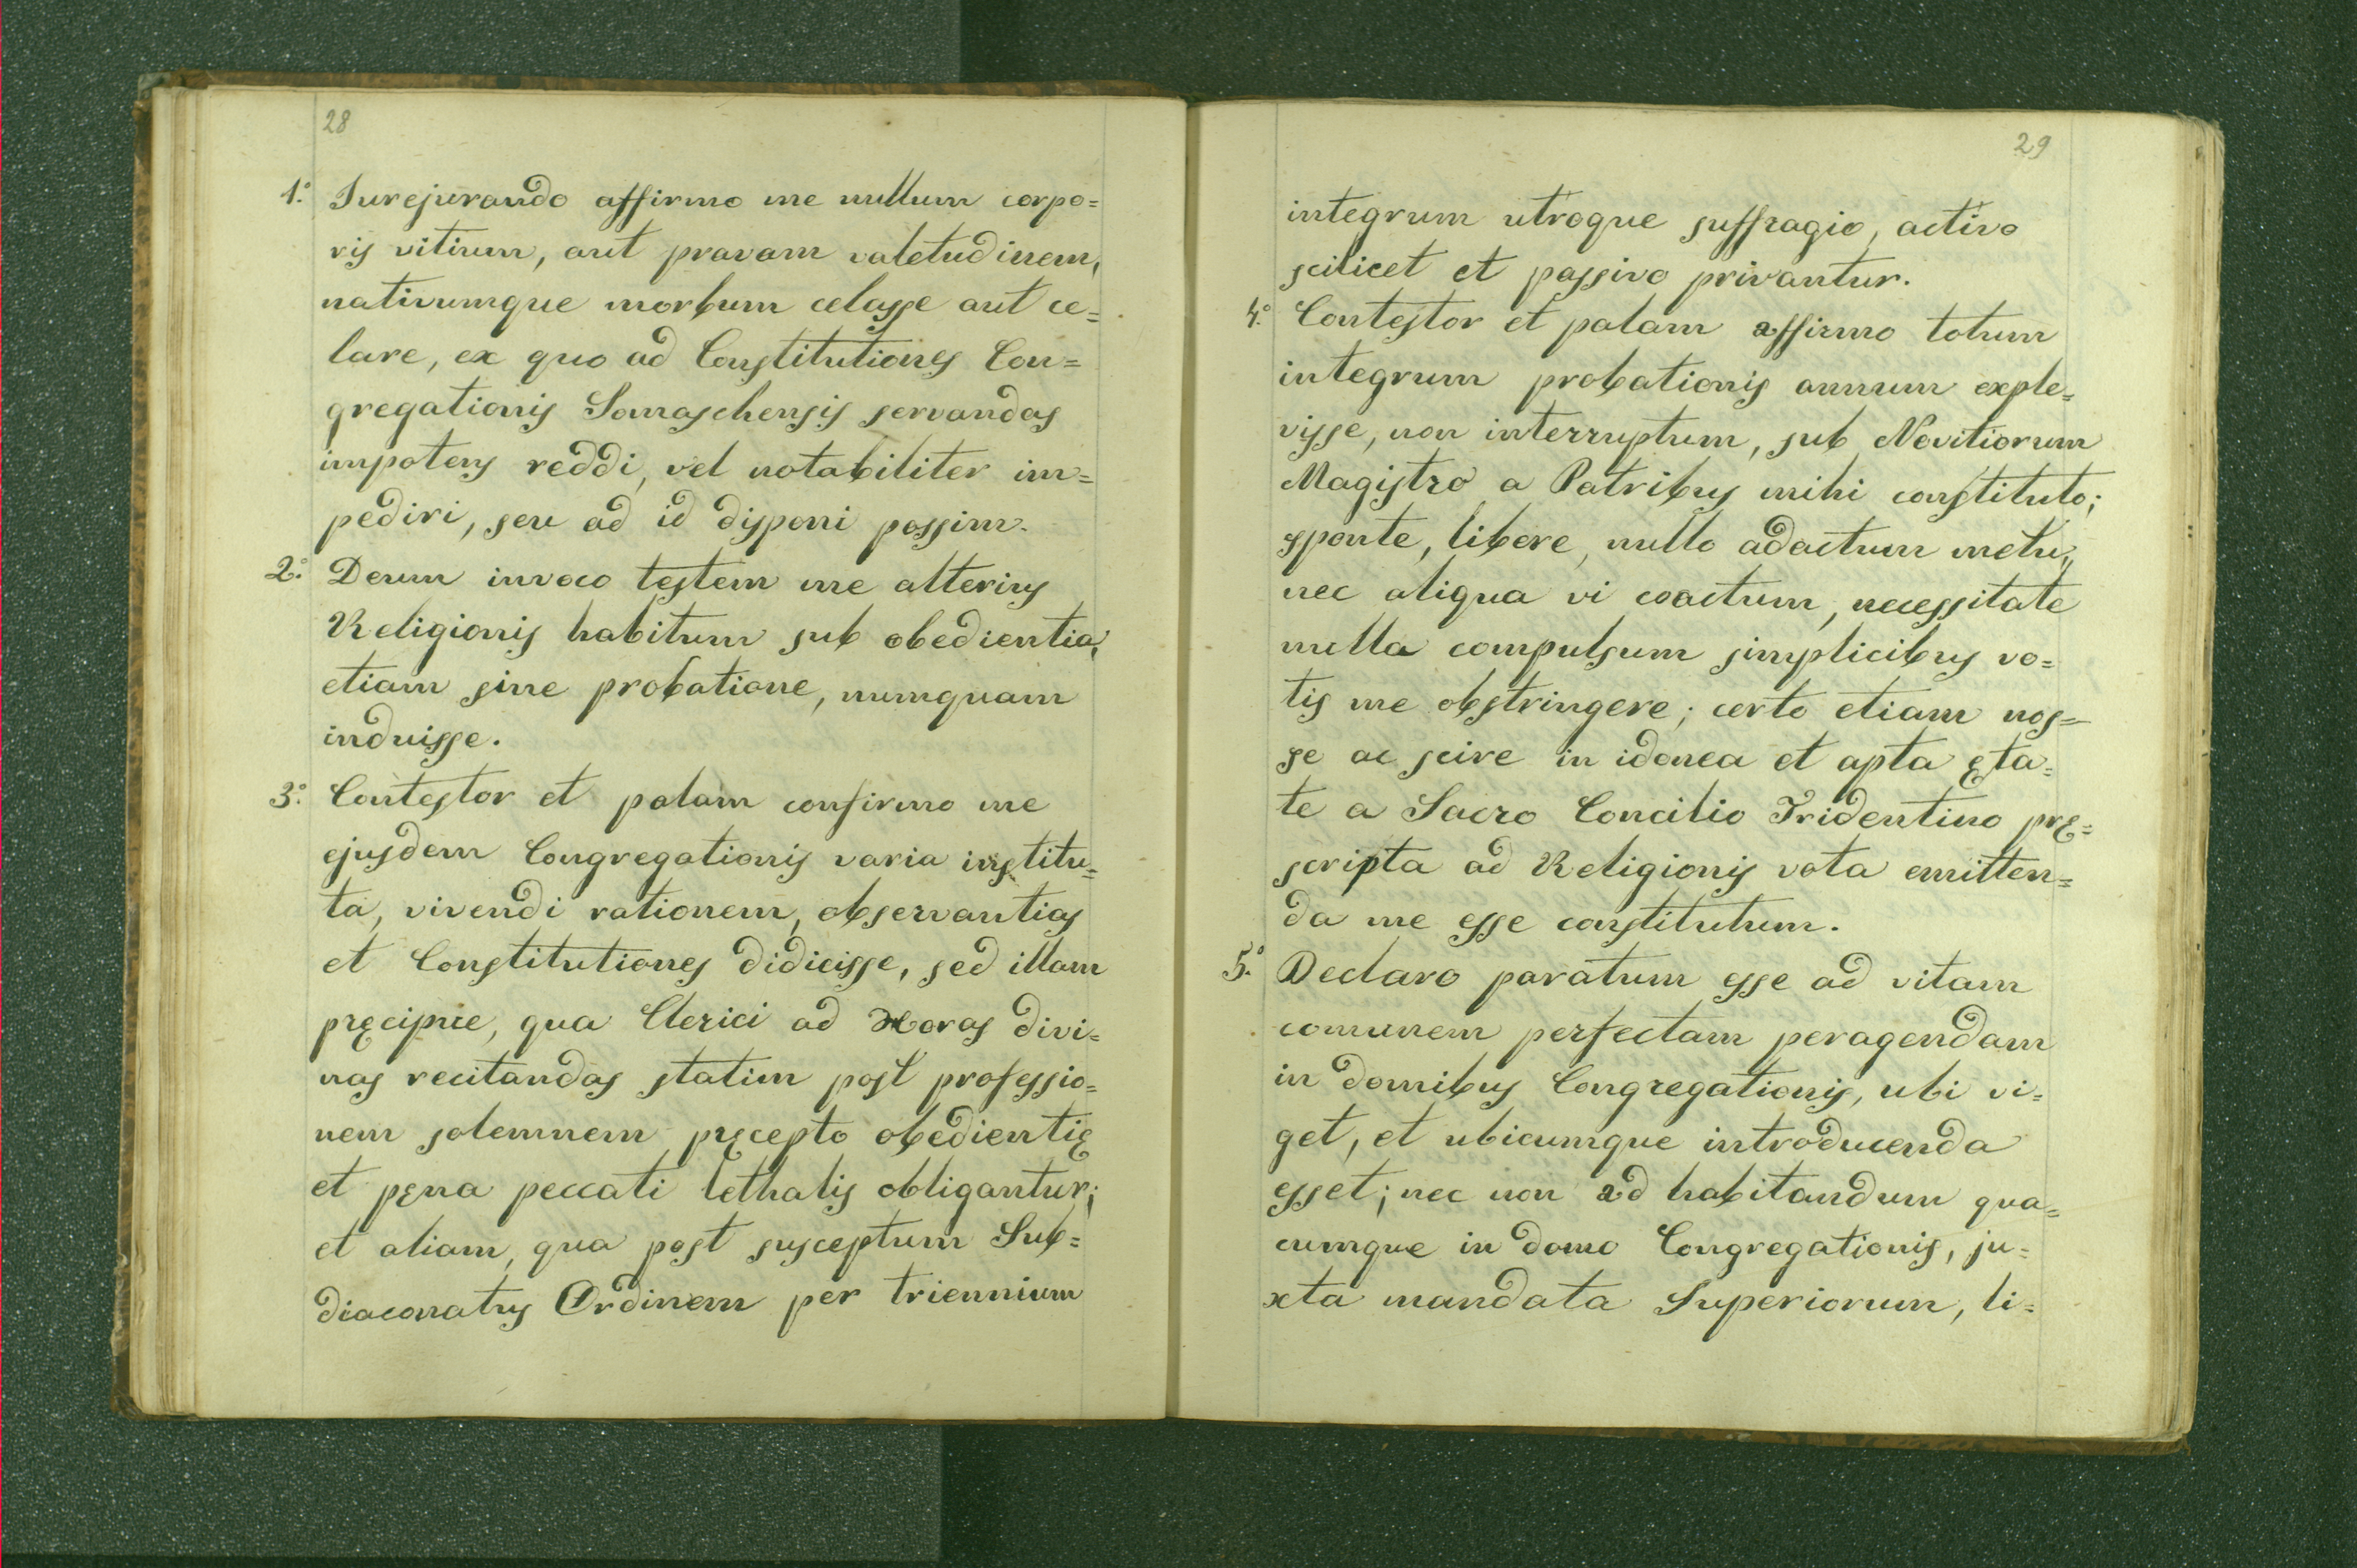 28
1.° Jurejurando affirmo me nullum corpo=
ris vitium, aut pravam valetudinem,
nativumque morbum celasse aut ce=
lare, ex quo ad Constitutiones Con=
gregationis Somaschensis servandas
impotens reddi, vel notabiliter im=
pediri, seu ad id disponi possim.
2.° Deum invoco testem me alterius
Religionis habitum sub obedientia,
etiam sine probatione, numquam
induisse.
3.° Contestor et palam confirmo me
ejusdem Congregationis varia institu=
ta, vivendi rationem, observantias
et Constitutiones didicisse, sed illam
pręcipue, qua Clerici ad Horas divi=
nas recitandas statim post professio=
nem solemnem pręcepto obedientię
et pęna peccati lethalis obligantur;
et aliam, qua post susceptum Sub=
diaconatus Ordinem per triennium
29
integrum utroque suffragio, activo
scilicet et passivo privantur.
4.° Contestor et palam affirmo totum
integrum probationis annum exple=
visse, non interruptum, sub Novitiorum
Magistro a Patribus mihi constituto;
sponte, libere, nullo adactum metu,
nec aliqua vi coactum, necessitate
nulla compulsum simplicibus vo=
tis me obstringere; certo etiam nos=
se ac scire in idonea et apta ęta=
te a Sacro Concilio Tridentino prę=
scripta ad Religionis vota emitten=
da me esse constitutum.
5.° Declaro paratum esse ad vitam
comunem perfectam peragendam
in domibus Congregationis, ubi vi=
get, et ubicumque introducenda
esset; nec non ad habitandum qua=
cumque in domo Congregationis, ju=
xta mandata Superiorum, li=